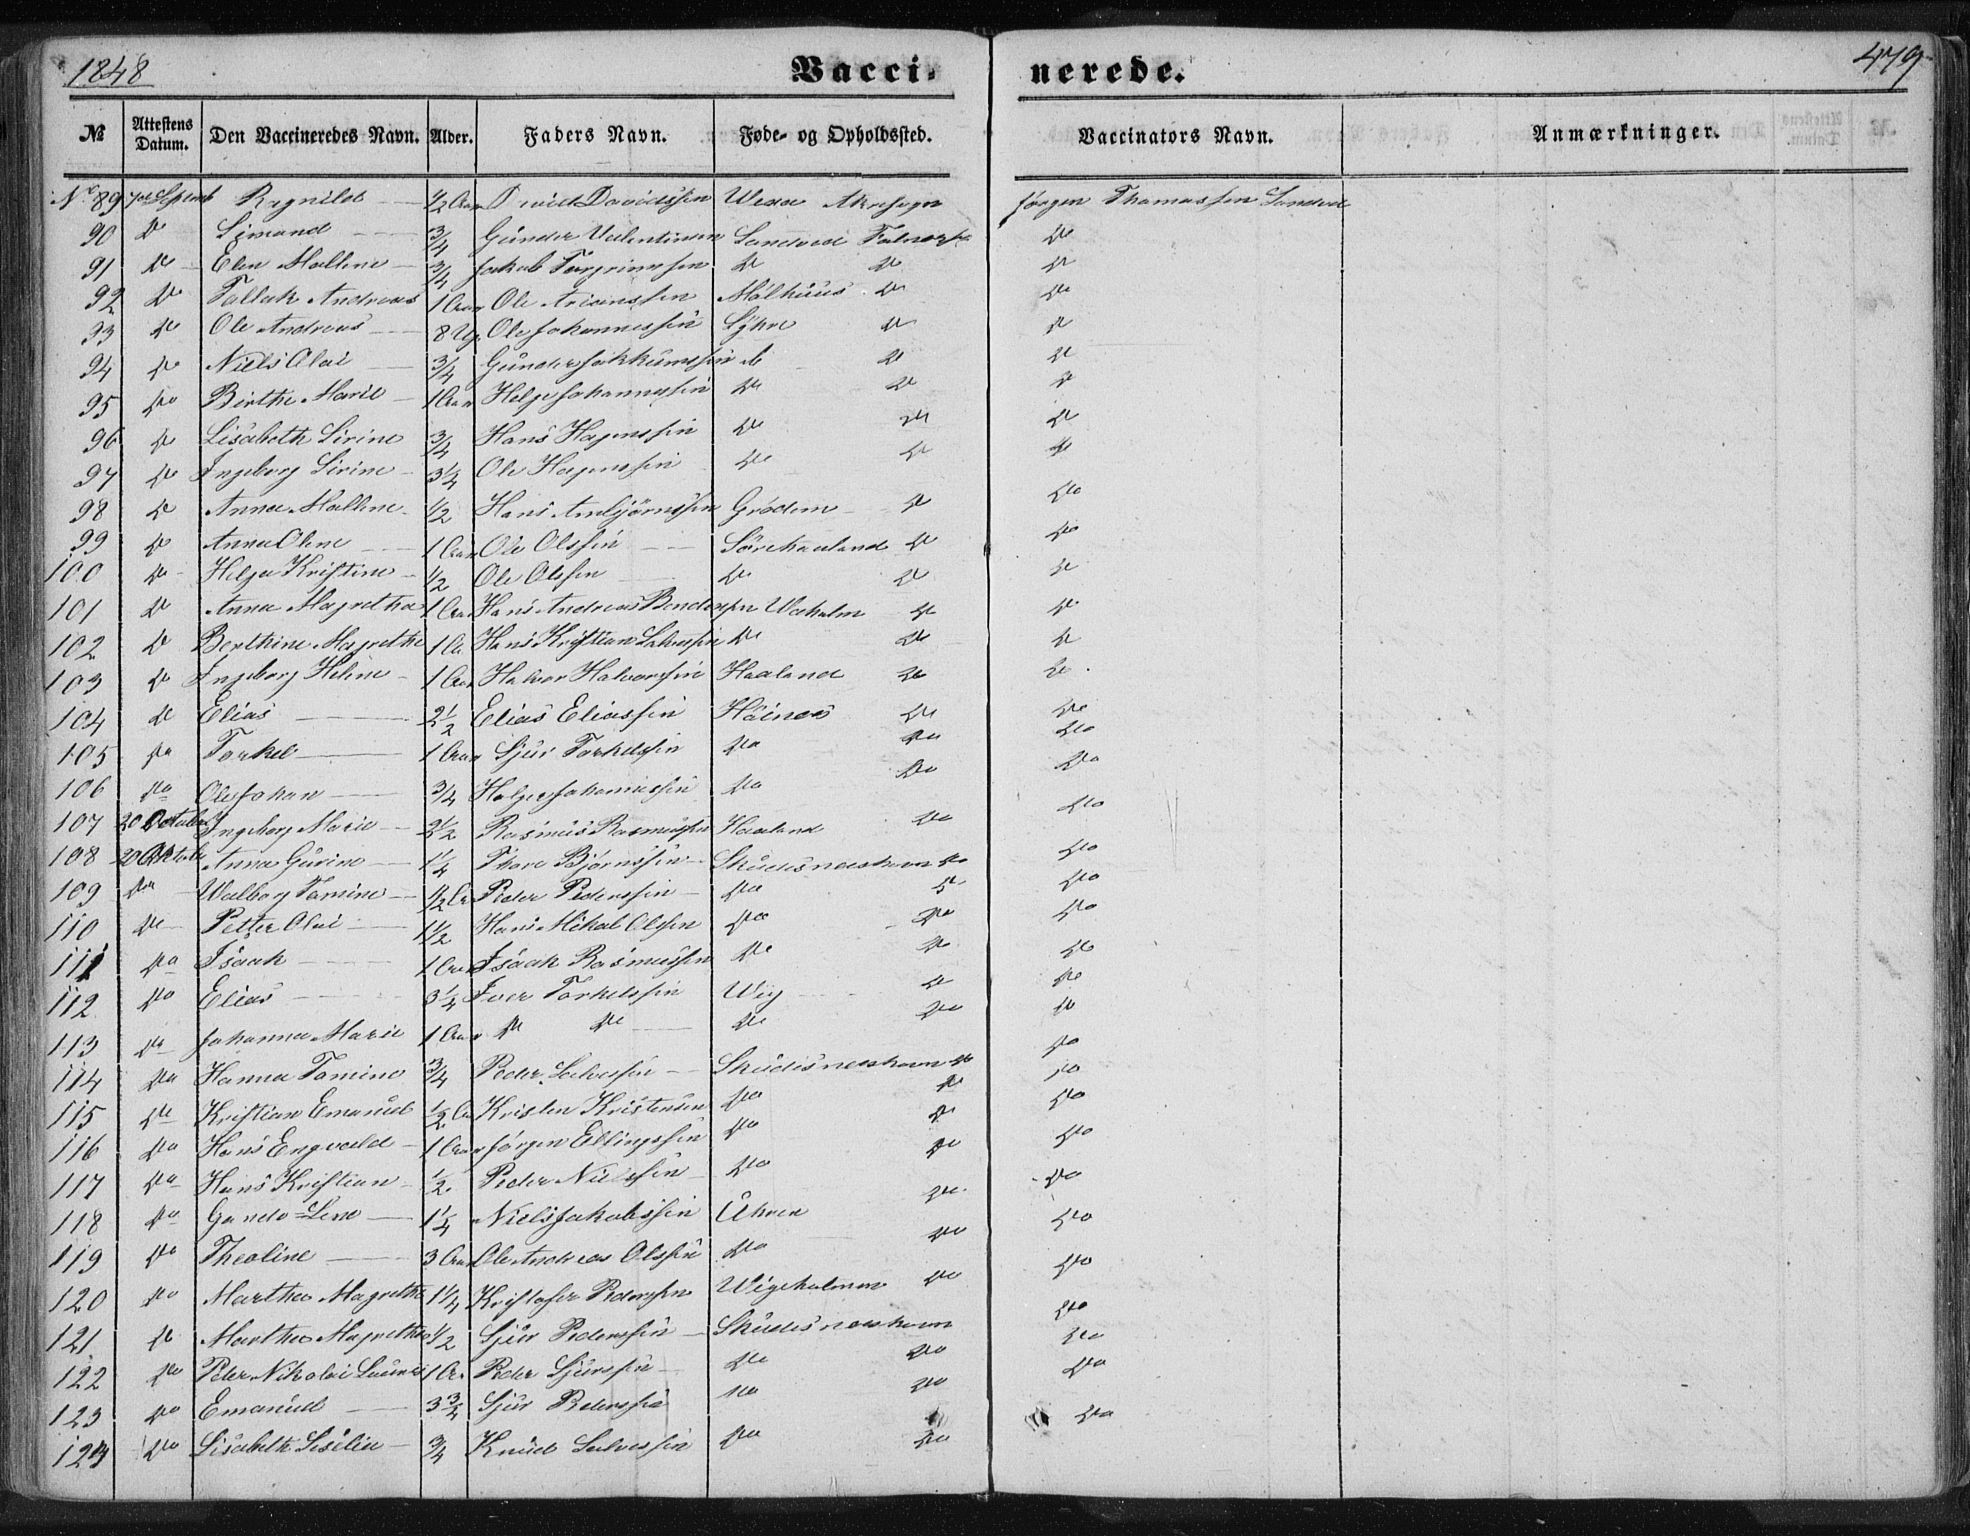 1848 Vacci- nerede. 479
№ Attestens Datum. Den Vaccineredes Navn. Alder. Faders Navn. Føde- og Opholdssted. Vaccinators Navn. Anmærkninger.
No 89 Septemb Ragnild 1/2 Aar David Davidssen Wera Jörgen Thomassen Sandved
90 do Simand 3/4 Gunder Valentinsen Sandved do
91 do Elen Malline 3/4 Jakob do do do
92 do Tallak Andreas 1 Aar Ole Mölhuus do do
93 do Ole Andreas Ole Johannessen Syhre do do
94 do Niels Olai 3/4 Gunder do do do
95 do Birthe Marie 1 Aar Helge Johannessen do do do
96 do Lisabeth Sirine 3/4 Hans Hagenssen do do do
97 do Ingeborg Sirine 3 1/4 Ole Hagenssen do do do
98 do Anna Malline 1/2 Hans Grödem do do
99 do Anna Oline 1 Aar Ole Olssen Sörehaaland do do
100 do Helga Kristine 1/2 Ole Olssen do do do
101 do Anna Magretha 1 Aar Hans Andreas do do
102 do Berthine Magrethe 1 Aa Hans Kristian do do do
103 do Ingeborg Heline 1 Aar Halvor Halvorssen Haaland do do
104 do Elias 2 1/2 Elias Eliassen Höines do do
105 do Torkel 1 Aar Sjur Torkelssen do do do
106 do Ole Johan 3/4 Helge Johannessen do do do
107 20 October Ingeborg Marie 2 1/2 Rasmus Rasmussen Haaland do do
108 20 Anna Gurine 1 1/4 Thore Bjørnssen Skudesneshavn do do
109 do Walborg Tomine 1/2 Peder Pederssen do do do
110 do Petter Olai 1 1/2 Hans Mikal Olssen do do do
111 do Isaak 1 Aar Isaak Rasmussen do do do
112 do Elias 3 1/4 Iver Torkelssen do do
113 do Johanna Marie 1 Aar do do do do do
114 do Hanna Tomine 3/4 Peder Skudesneshavn do do
115 do Kristian Emanuel 1/2 Kristen Kristensen do do do
116 do Hans Engvald 1 Aar Jörgen Ellingssen do do do
117 do Hans Kristian 1/2 Peder Nielssen do do do
118 do Lene 1 1/4 Niels Jakobssen do do
119 do Theoline 3 Aar Ole Andreas Olssen do do do
120 do Marthe Magrethe 1 1/4 Kristofer Pederssen Wigeholmen do do
121 do Marthe Magrethe 1/2 Sjur Pederssen Skudesneshavn do
122 do Peter Nikolai 1 Aa Peder Sjurssen do do do
123 do Emanuel Sjur Pederssen do do do
124 do Lisabeth 3/4 Knud do do